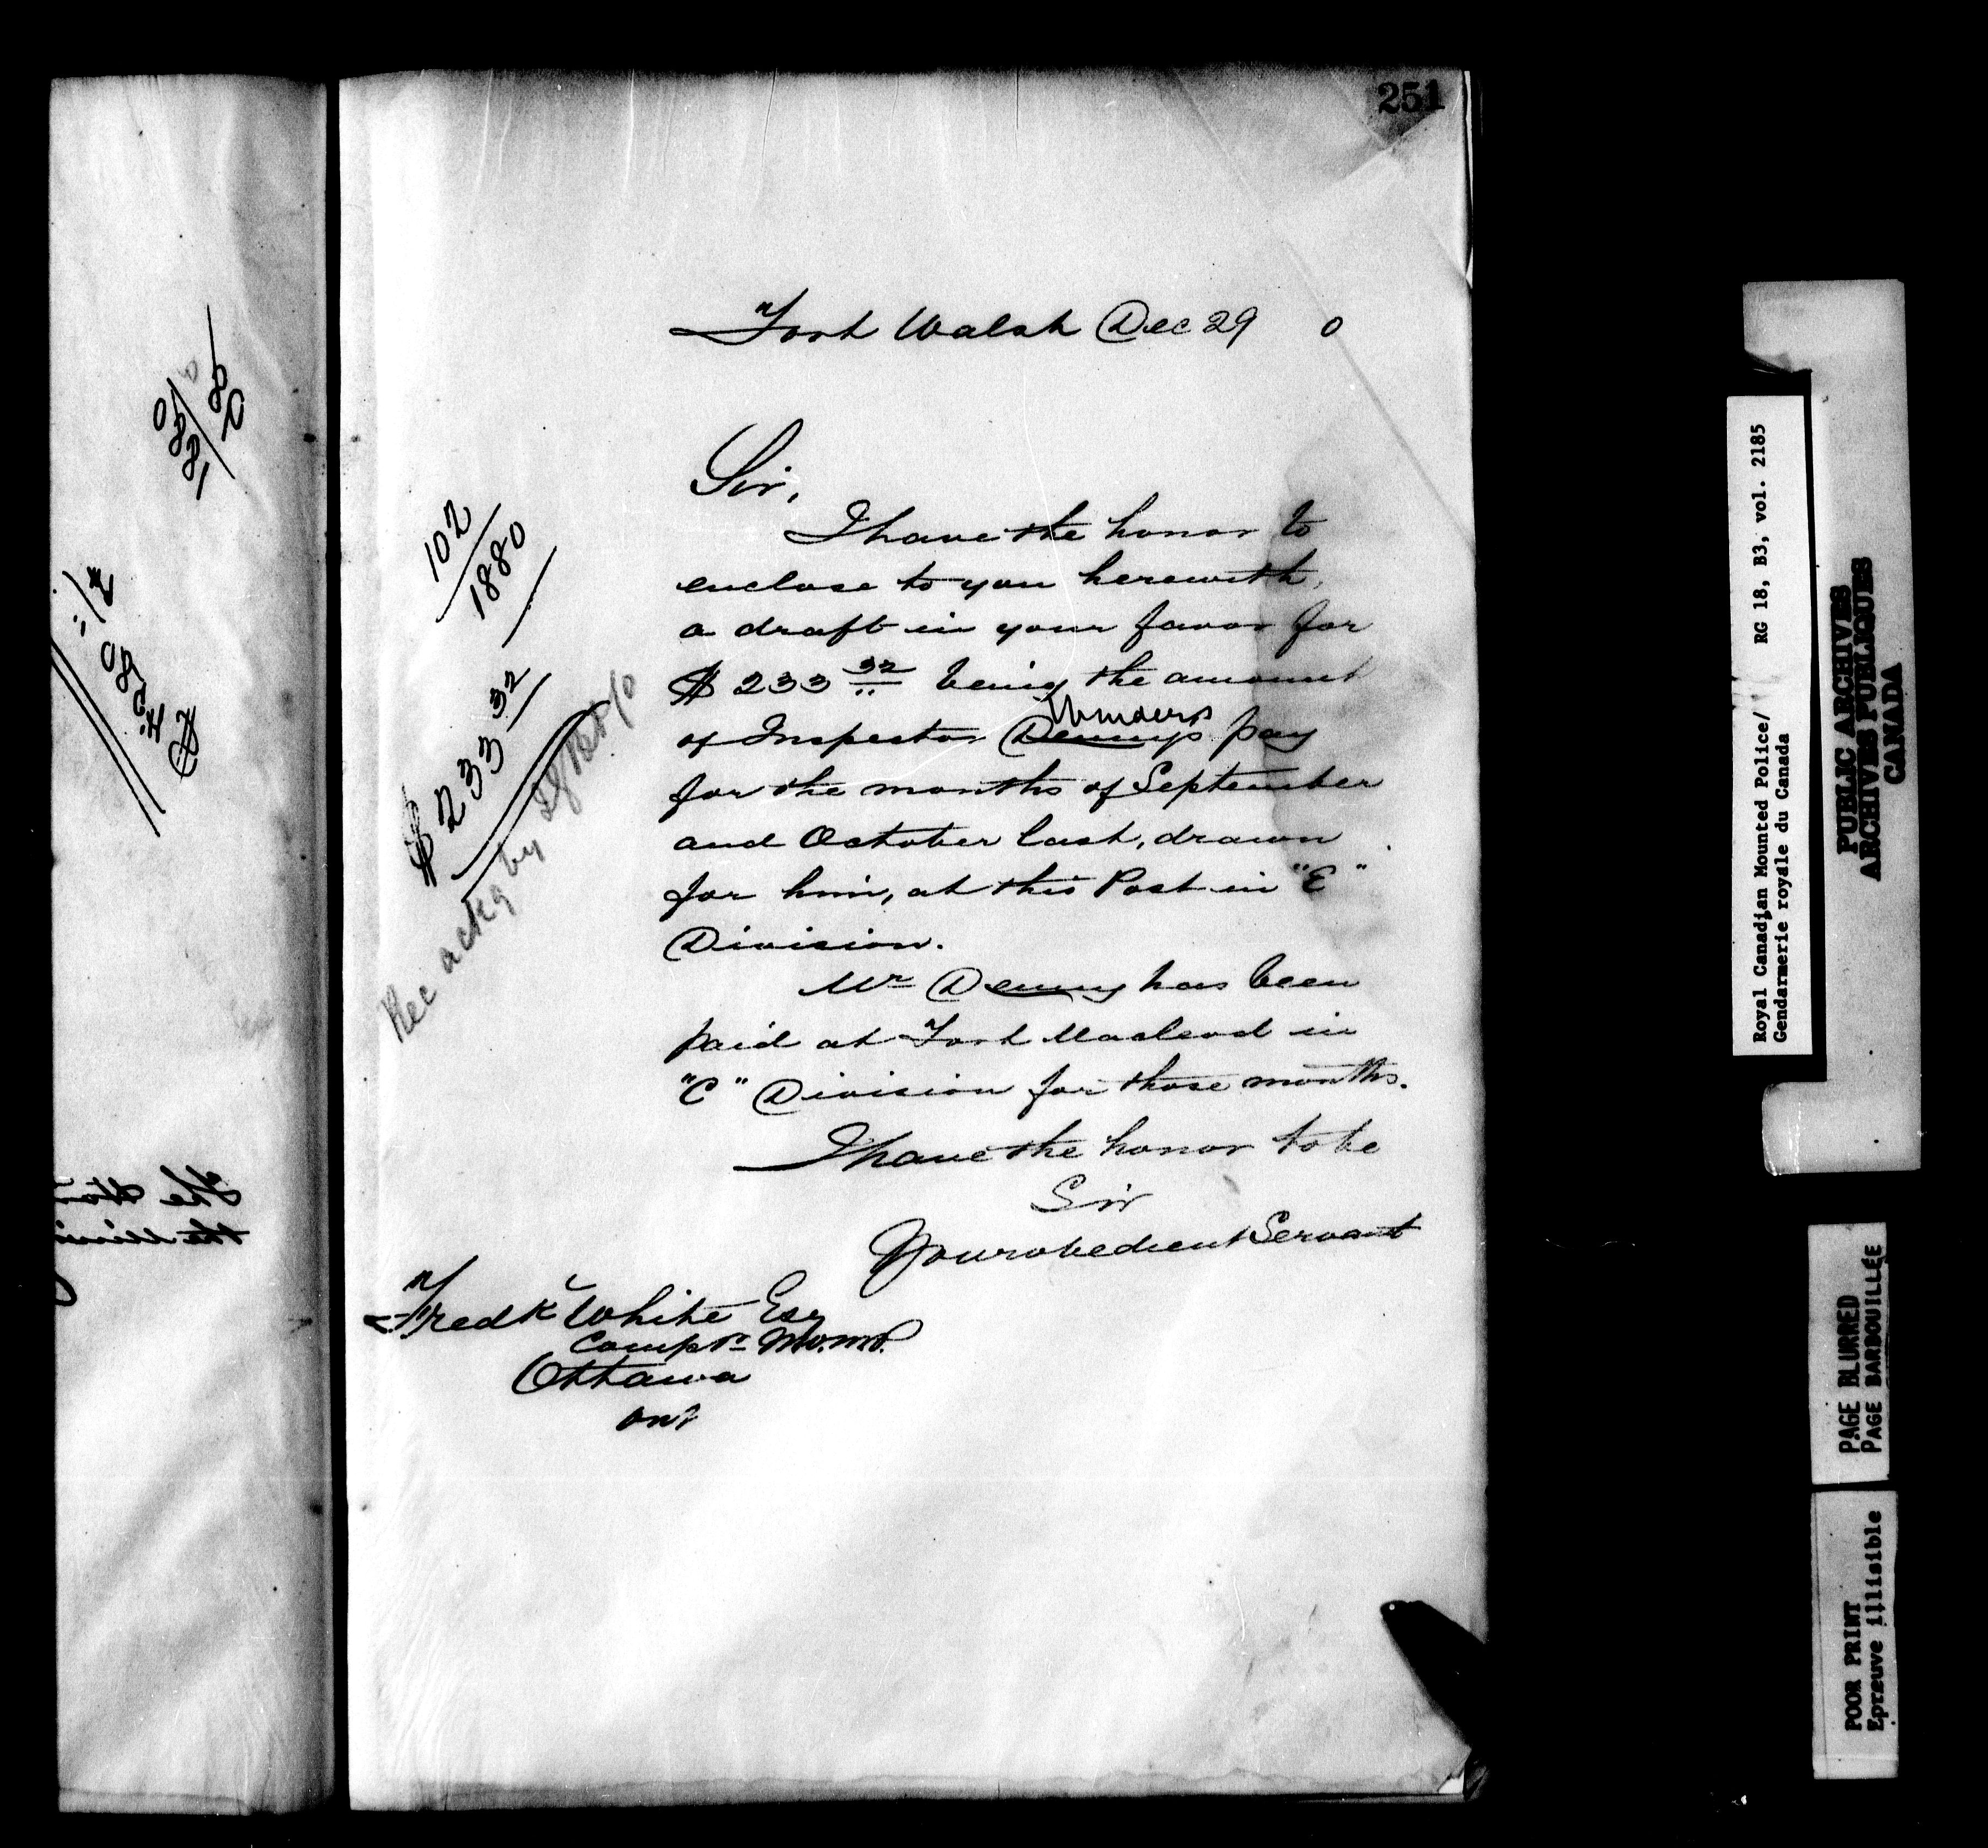 251
Fort Walsh Dec 29 0
Sir,
I have the honor to
enclose to you herewith,
a draft in your favor for
$ 233 32 being the amount
of Inspector Denny's pay
for the months of September
and October last, drawn
for him, at this Post in "E"
Division.
Mr Denny has been
paid at Fort Macleod in
"C" Division for those months.
I have the honor to be
Sir
Your obedient Servant
Fredk White Esq
Comptr N.W.M.P.
Ottawa
Ont
102
1880
$ 233 32
Rec ackg by
The Hon
the Mini
Royal Canadian Mounted Police/ RG 18, B3, vol. 2185
Gendarmerie royale du Canada
PUBLIC ARCHIVES
ARCHIVES PUBLIQUES
CANADA
PAGE BLURRED
PAGE BARBOUILLÉE
POOR PRINT
Epreuve illisible